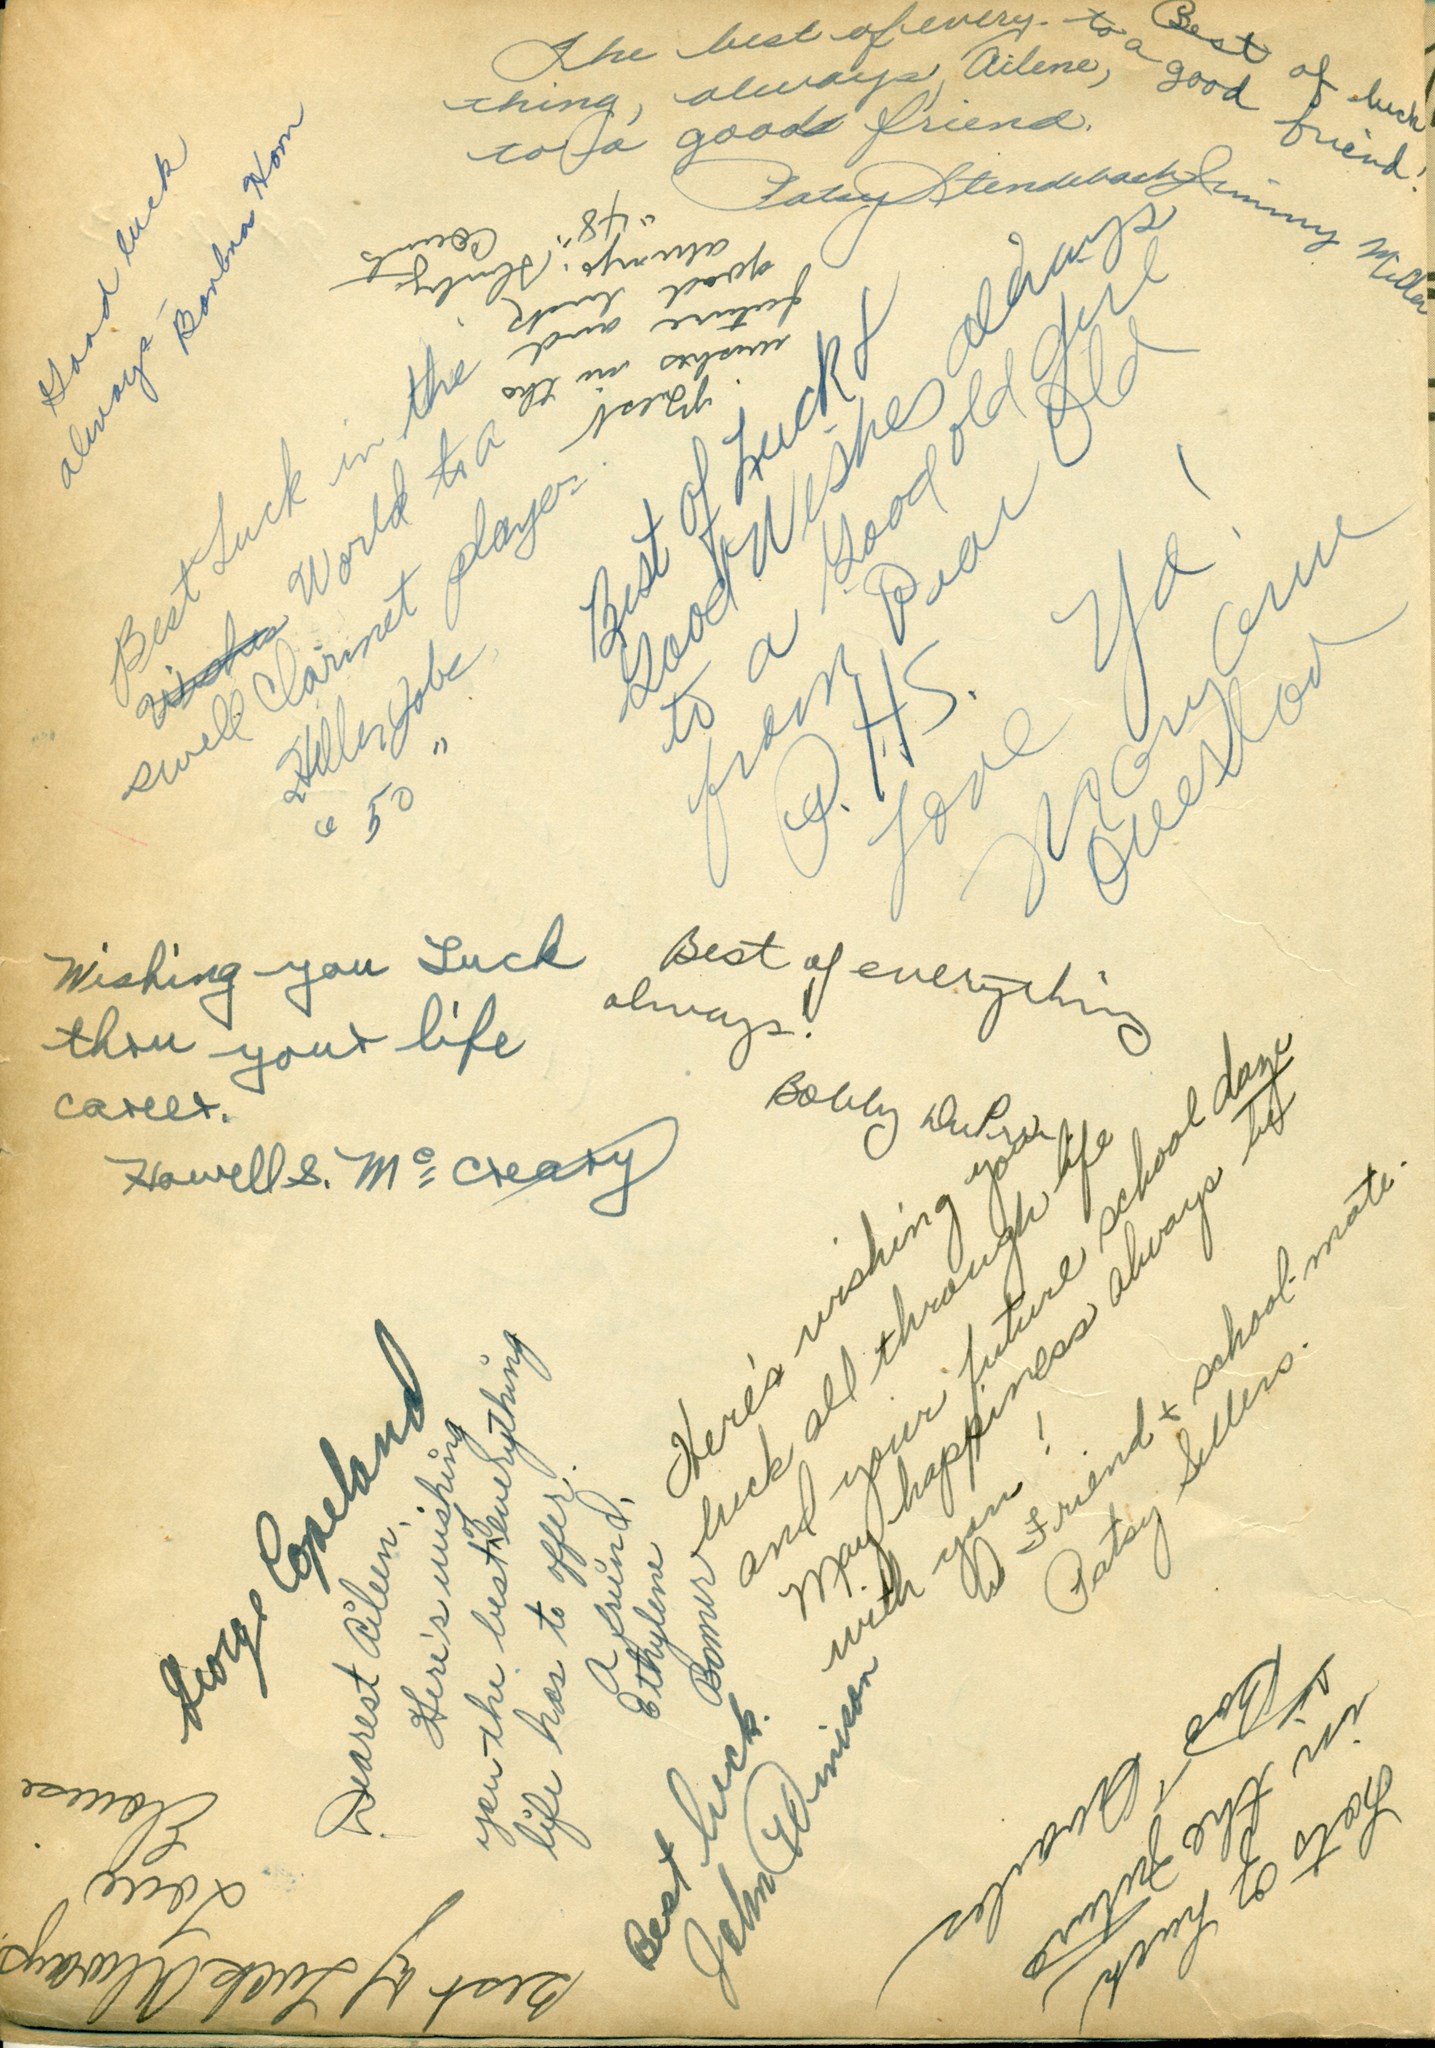 The best of every-
thing, always, Ailene,
to a good friend.
Patsy Stendebach
Best of luck
to a good friend!
Jimmy Miller
Good luck
always-
Barbra Horn
Best wishes in the
future and
good luck
always.
"48"
Best Luck in the
World to a
swell Clarinet player
"50"
Best of Luck &
Good Wishes always
to a Good old Girl
from Dear Old
P.H.S.
Love Ya!
Mary Anne
Overstod
Wishing you Luck
thru your life
career.
Howell S. McCreary
Best of everything
always!
Bobby
Here's wishing you
luck all through life
and your future school daze
May happiness always be
with you!
A Friend & school-mate.
Patsy Sellers.
George Copeland
Dearest Aileen,
Here's wishing
you the best of everything
life has to offer.
A friend,
Ethylene
Bomer
Best luck.
John Denison
Best of Luck Always
Love
Elouise
Lots of Luck
in the Future
Charles